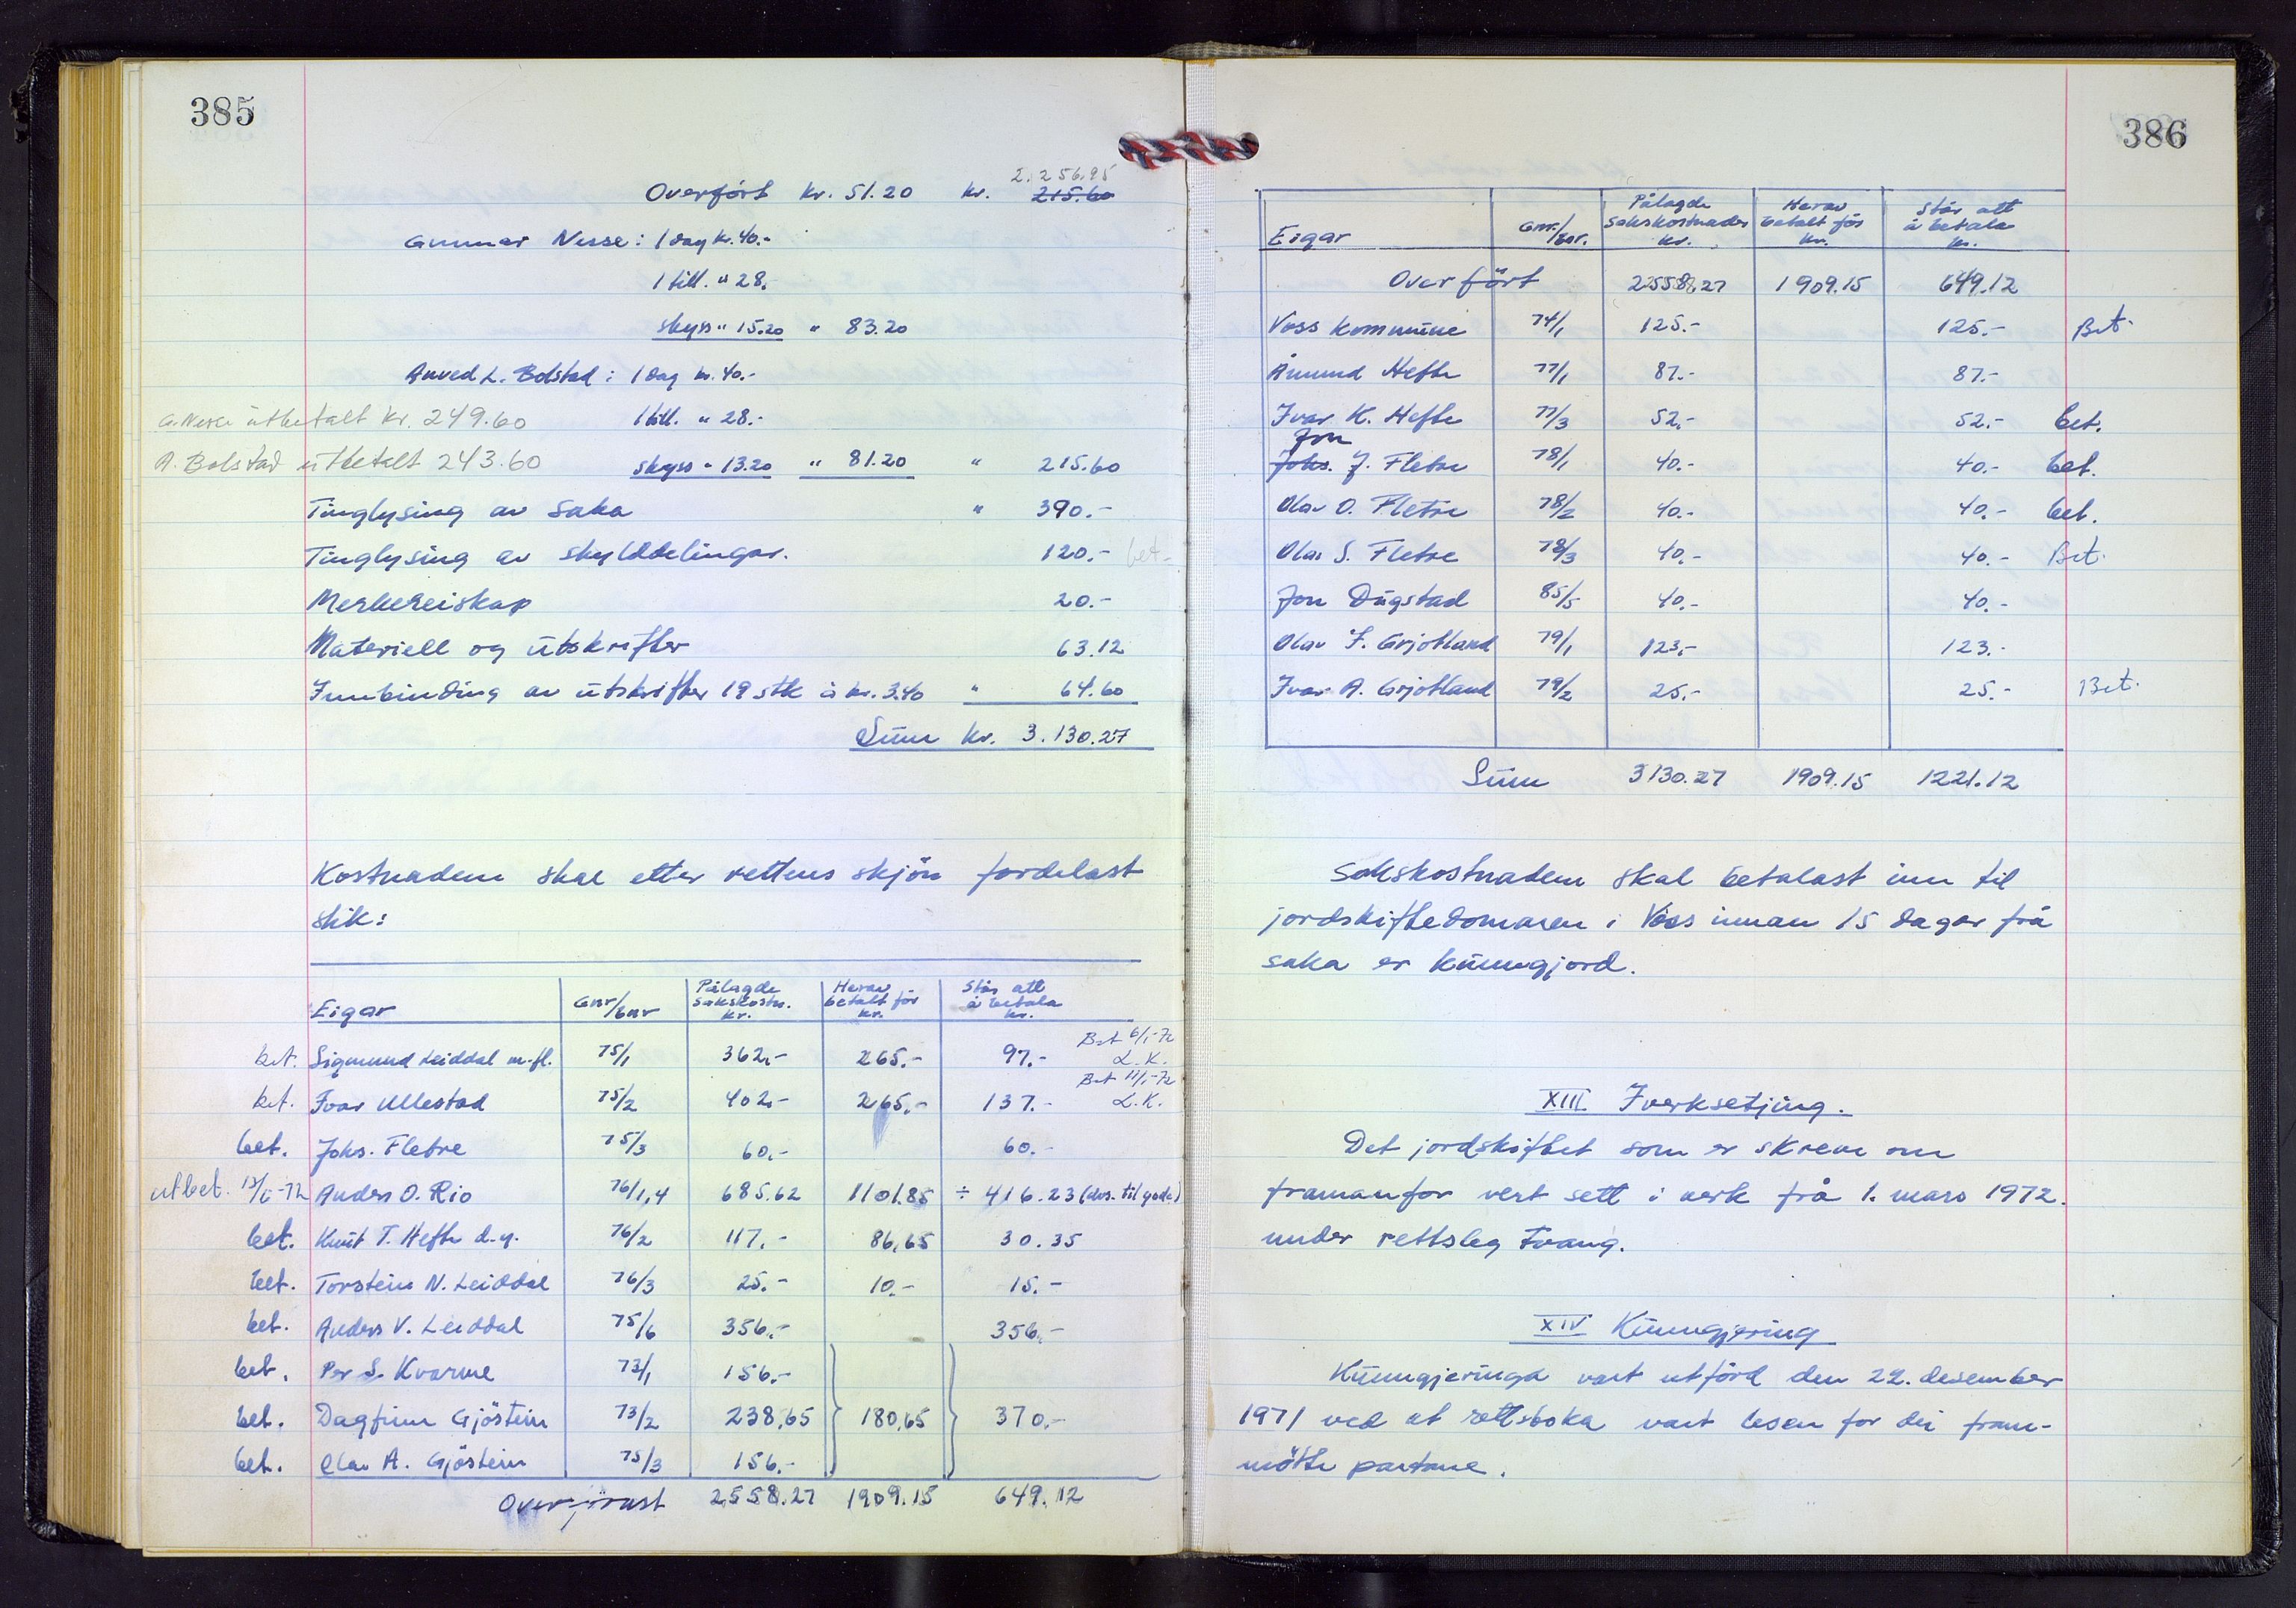 385
2.256.95
Overført kr. 51.20 kr. 215.60
Gunnar Nesse: 1 dag kr. 40.-
1 till. " 28.
skyss " 15.20 " 83.20
Anved L. Bolstad: 1 dag kr. 40.-
G. Nesse utbetalt kr. 249.60 1 till. " 28.-
A. Bolstad utbetalt 243.60 skyss " 13.20 " 81.20 " 215.60
Tinglysing av saka " 390.-
Tinglysing av skylddelingar. 120.- bet.
Merkereiskap 20.-
Materiell og utskrifter 63.12
Innbinding av utskrifter 19 stk à kr. 3.40 " 64.60
Sum kr. 3.130.27
Kostnaden skal etter rettens skjön fordelast
slik:
Eigar Gnr/bnr Pålagde sakskostn. kr. Herav betalt för kr. Står att å betala kr.
bet. Sigmund Leiddal m.fl. 75/1 362.- 265.- 97.- Bet 6/1-72 L.K.
bet. Ivar Ullestad 75/2 402.- 265.- 137.- Bet 11/1-72 L.K.
bet. Johs. Fletre 75/3 60.- 60.-
utbet. 13/6-72 Anders O. Rio 76/1,4 685.62 1101.85 ÷ 416.23 (dvs. til gode)
bet. Knut T. Hefte d.y. 76/2 117.- 86.65 30.35
bet. Torstein N. Leiddal 76/3 25.- 10.- 15.-
bet. Anders V. Leiddal 75/6 356.- 356.-
bet. Per S. Kvarme 73/1 156.-
bet. Dagfinn Gjöstein 73/2 238.65 180.65 370.-
bet. Olav A. Gjöstein 75/3 156.-
Overförast 2558.27 1909.15 649.12
386
Eigar Gnr./bnr. Pålagde sakskostnader kr. Herav betalt för kr. Står att å betala kr.
Overfört 2558.27 1909.15 649.12
Voss kommune 74/1 125.- 125.- Bet.
Åmund Hefte 77/1 87.- 87.-
Ivar K. Hefte 77/3 52.- 52.- bet.
Jon
Johs. J. Fletre 78/1 40.- 40.- bet.
Olav O. Fletre 78/2 40.- 40.- bet.
Olav S. Fletre 78/3 40.- 40.- Bet.
Jon Dugstad 85/5 40.- 40.-
Olav I. Grjotland 79/1 123.- 123.-
Ivar A. Grjotland 79/2 25.- 25.- Bet.
Sum 3130.27 1909.15 1221.12
Sakskostnaden skal betalast inn til
jordskiftedomaren i Voss innan 15 dagar frå
saka er kunngjord.
XIII Iverksetjing.
Det jordskiftet som er skreve om
framanfor vert sett i verk frå 1. mars 1972.
under rettsleg tvang.
XIV Kunngjering
Kunngjeringa vart utförd den 22. desember
1971 ved at rettsboka vart lesen for dei fram-
mötte partane.